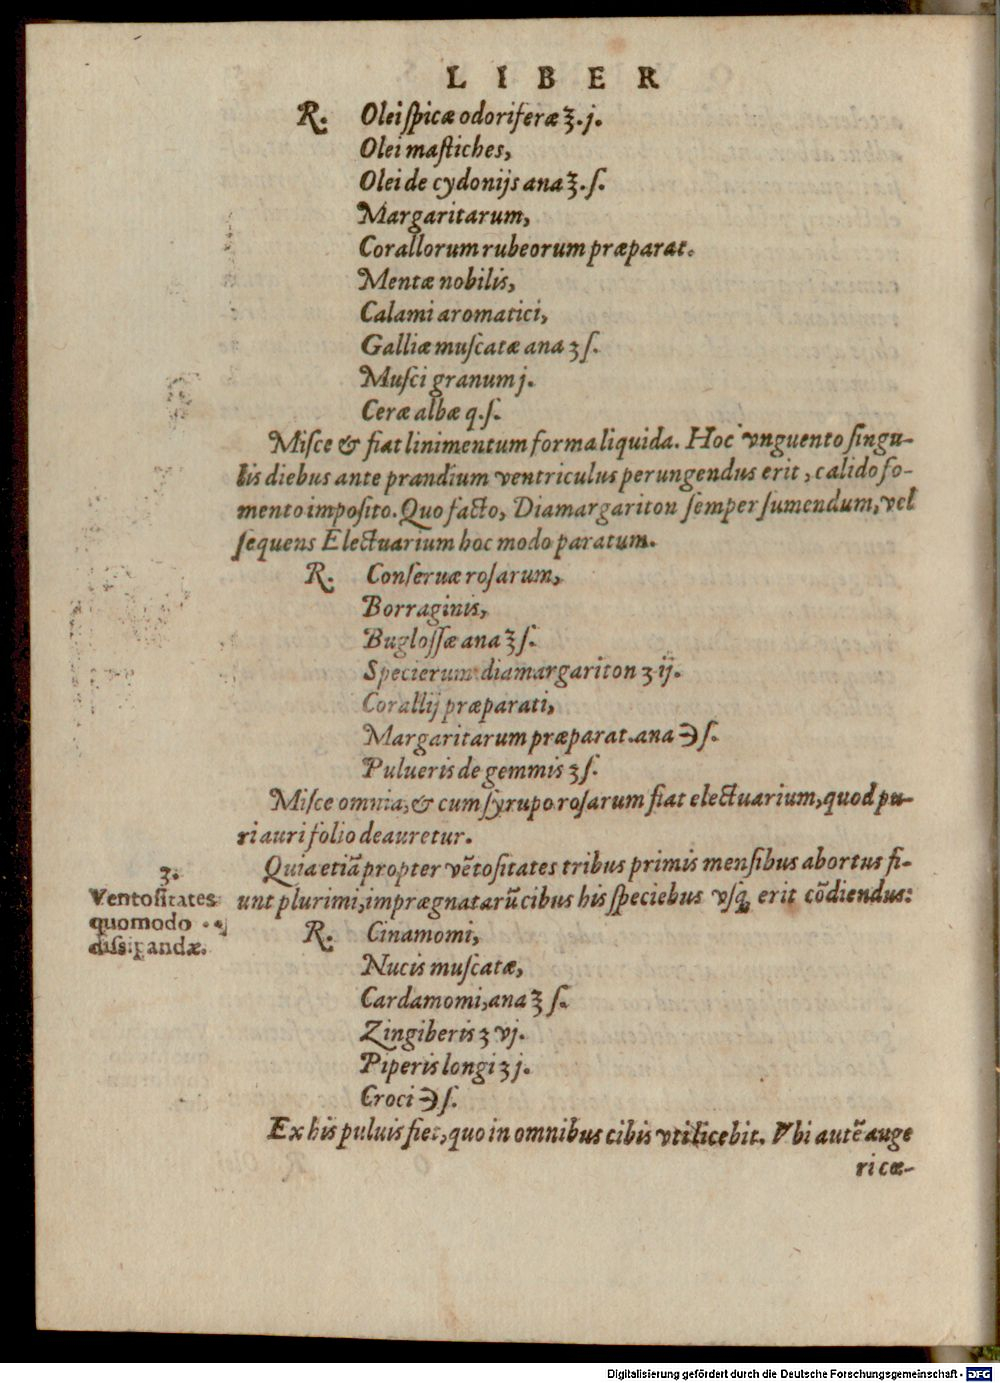 LIBER
R. Olei ſpicæ odoriferæ ℥. j.
Olei maſtiches,
Olei de cydonijs ana ℥. ſ.
Margaritarum,
Corallorum rubeorum præparat.
Mentæ nobilis,
Calami aromatici,
Galliæ muſcatæ ana ʒ ſ.
Muſci granum j.
Ceræ albæ q. ſ.
Miſce & fiat linimentum forma liquida. Hoc vnguento ſingu-
lis diebus ante prandium ventriculus perungendus erit, calido fo-
mento impoſito. Quo facto, Diamargariton ſemper ſumendum, vel
ſequens Electuarium hoc modo paratum.
R. Conſeruæ roſarum,
Borraginis,
Bugloſſæ ana ℥ ſ.
Specierum diamargariton ʒ ij.
Corallij præparati,
Margaritarum præparat. ana ℈ ſ.
Pulueris de gemmis ʒ ſ.
Miſce omnia, & cum ſyrupo roſarum fiat electuarium, quod pu-
ri auri folio deauretur.
Quia etiã propter vẽtoſitates tribus primis menſibus abortus fi-
unt plurimi, imprægnatarũ cibus his ſpeciebus vſq; erit cõdiendus:
3.
Ventoſitates
quomodo
diſsipandæ.
R. Cinamomi,
Nucis muſcatæ,
Cardamomi, ana ℥ ſ.
Zingiberis ʒ vj.
Piperis longi ʒ j.
Croci ℈ ſ.
Ex his puluis fiet, quo in omnibus cibis vti licebit. Vbi autẽ auge
ri cæ-
Digitalisierung gefördert durch die Deutsche Forschungsgemeinschaft - DFG